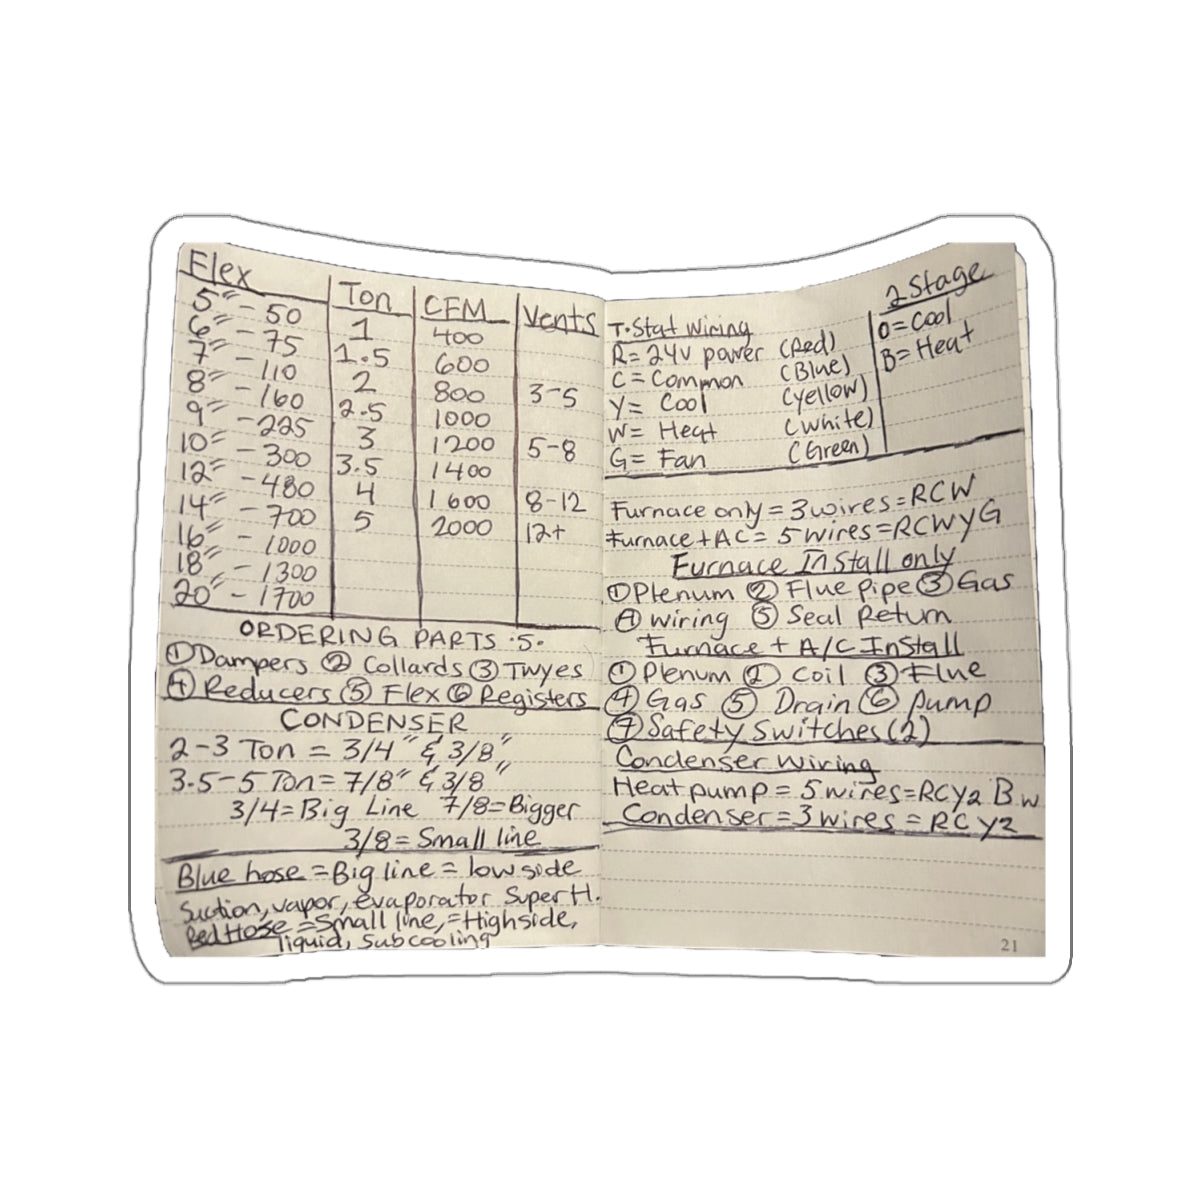 Flex
5" - 50
6" - 75
7" - 110
8" - 160
9" - 225
10" - 300
12" - 480
14" - 700
16" - 1000
18" - 1300
20" - 1700
Ton
1
1.5
2
2.5
3
3.5
4
5
CFM
400
600
800
1000
1200
1400
1600
2000
Vents
3-5
5-8
8-12
12+
ORDERING PARTS .5.
① Dampers ② Collards ③ Twyes
④ Reducers ⑤ Flex ⑥ Registers
CONDENSER
2-3 Ton = 3/4" & 3/8"
3.5-5 Ton = 7/8" & 3/8"
3/4 = Big Line 7/8 = Bigger
3/8 = Small line
Blue hose = Big line = low side
Suction, vapor, evaporator Super H.
Red Hose = Small line, = High side,
liquid, Subcooling
T.Stat Wiring
R = 24v power (Red)
C = Common (Blue)
Y = Cool (yellow)
W = Heat (white)
G = Fan (Green)
2 Stage
O = Cool
B = Heat
Furnace only = 3 wires = RCW
Furnace + AC = 5 wires = RCWYG
Furnace Install only
① Plenum ② Flue Pipe ③ Gas
④ wiring ⑤ Seal Return
Furnace + A/C Install
① Plenum ② Coil ③ Flue
④ Gas ⑤ Drain ⑥ pump
⑦ Safety Switches (2)
Condenser Wiring
Heat pump = 5 wires = RCY2 B W
Condenser = 3 wires = RC Y2
21